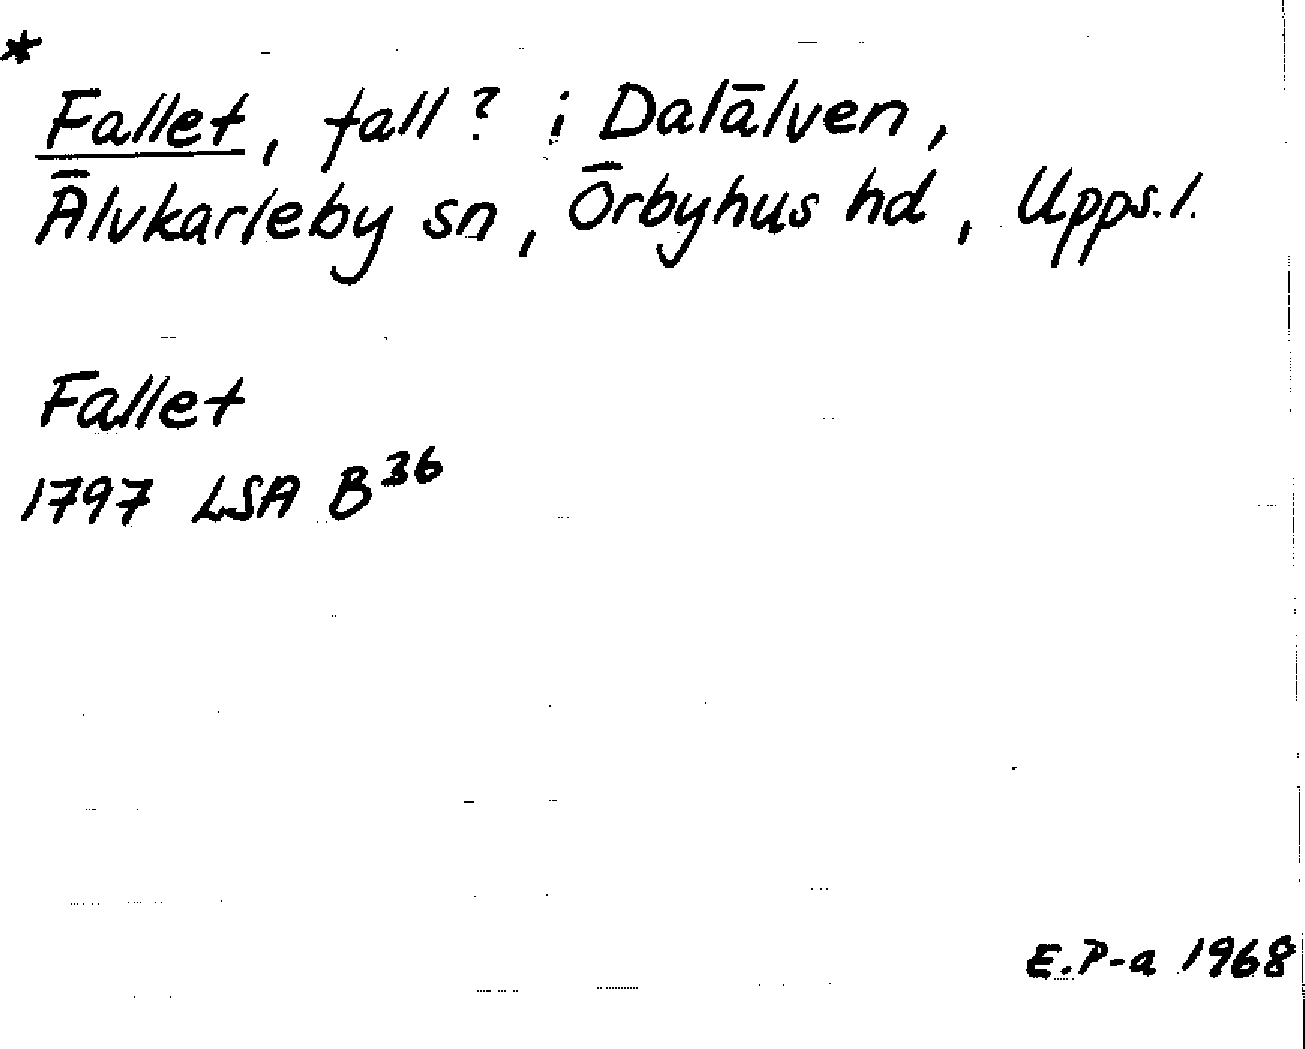 *
Fallet, fall? i Dalälven,
Älvkarleby sn, Örbyhus hd, Upps. l.
Fallet
1797 LSA B36
E.P-a 1968